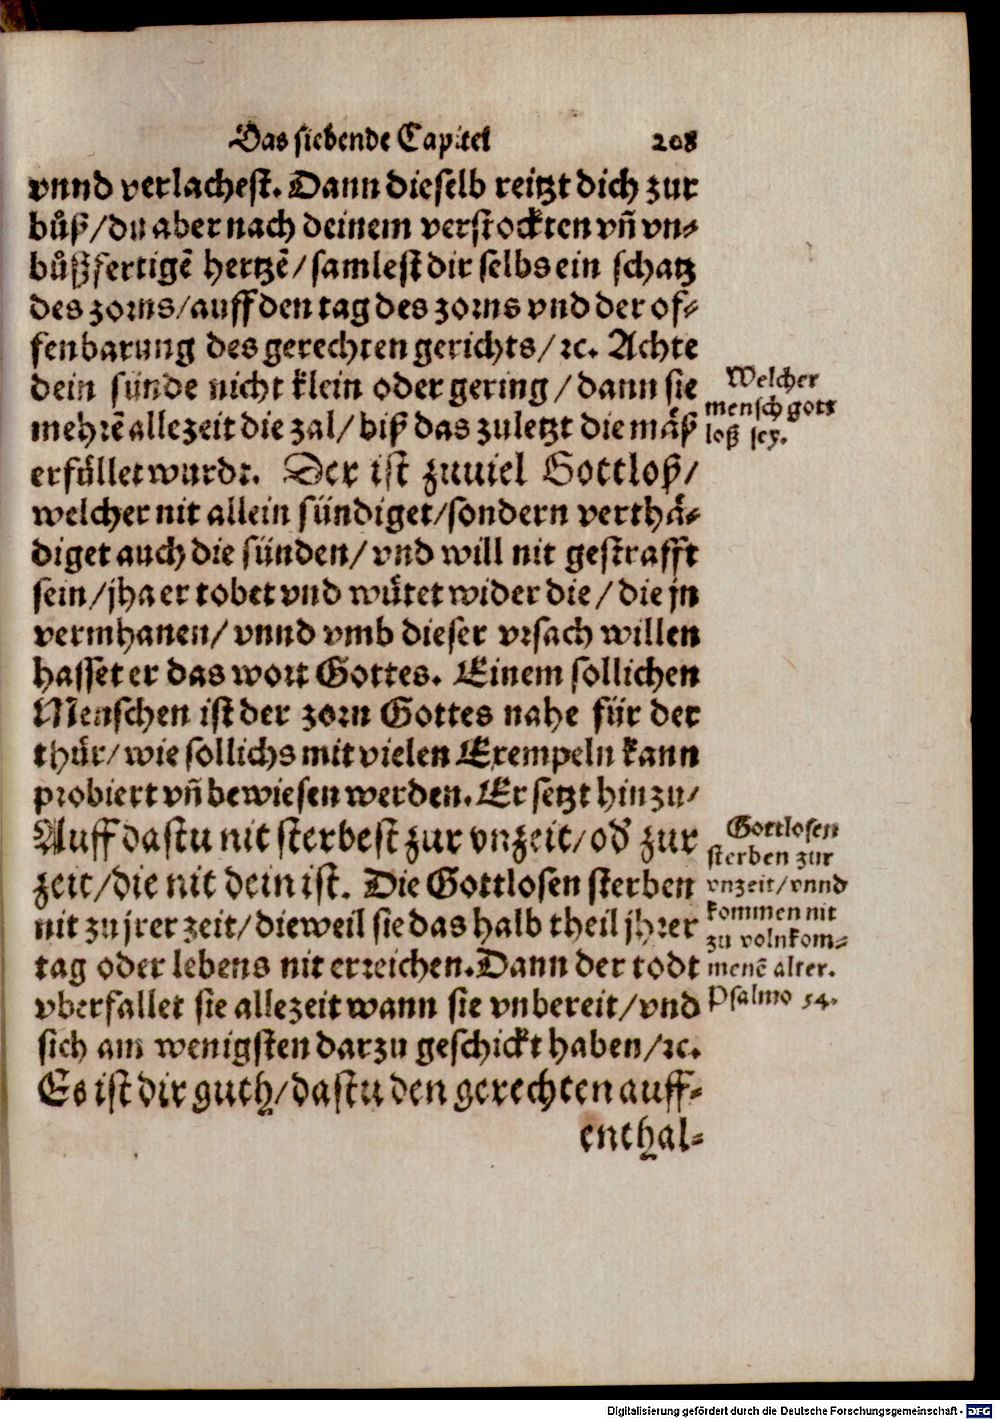 Das siebende Capitel 208
vnnd verlachest. Dann dieselb reitzt dich zur
bůß/du aber nach deinem verstockten vñ vn⸗
bůßfertigẽ hertzẽ/samlest dir selbs ein schatz
des zorns/auff den tag des zorns vnd der of⸗
fenbarung des gerechten gerichts/ꝛc. Achte
dein sünde nicht klein oder gering/dann sie
mehrẽ allezeit die zal/biß das zuletzt die måß
erfüllet wurde. Der ist zuuiel Gottloß/
welcher nit allein sündiget/sondern verthå⸗
diget auch die sünden/vnd will nit gestrafft
sein/jha er tobet vnd wütet wider die/die jn
vermhanen/vnnd vmb dieser vrsach willen
hasset er das wort Gottes. Einem sollichen
Menschen ist der zorn Gottes nahe für der
thür/wie sollichs mit vielen Exempeln kann
probiert vñ bewiesen werden. Er setzt hinzu/
Auff dastu nit sterbest zur vnzeit/od̾ zur
zeit/die nit dein ist. Die Gottlosen sterben
nit zu jrer zeit/dieweil sie das halb theil jhrer
tag oder lebens nit erreichen. Dann der todt
vberfallet sie allezeit wann sie vnbereit/vnd
sich am wenigsten darzu geschickt haben/ꝛc.
Es ist dir guth/dastu den gerechten auff⸗
enthal⸗
Welcher
mensch gott
loß sey.
Gottlosen
sterben zur
vnzeit/vnnd
kommen nit
zu volnkom⸗
menẽ alter.
Psalmo 54.
Digitalisierung gefördert durch die Deutsche Forschungsgemeinschaft - DFG